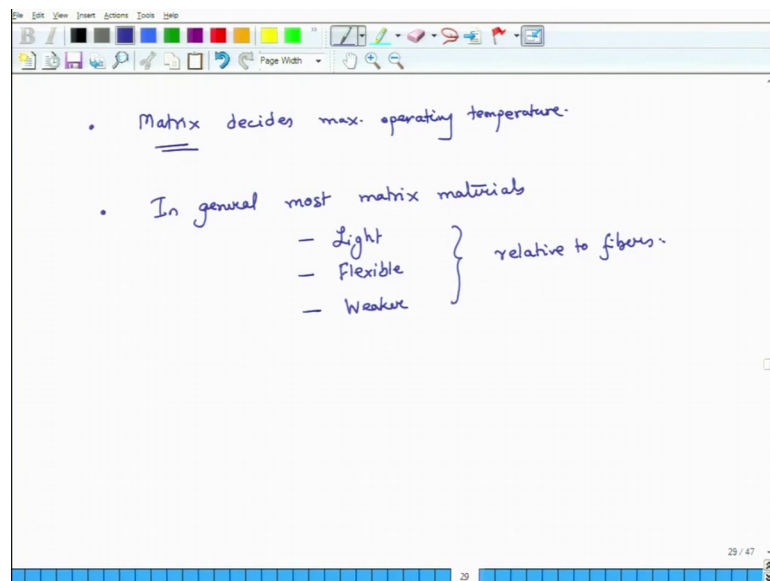 File Edit View Insert Actions Tools Help
B I
Page Width
• Matrix decides max. operating temperature.
• In general most matrix materials
– Light
– Flexible } relative to fibers.
– Weaker
29 / 47
29